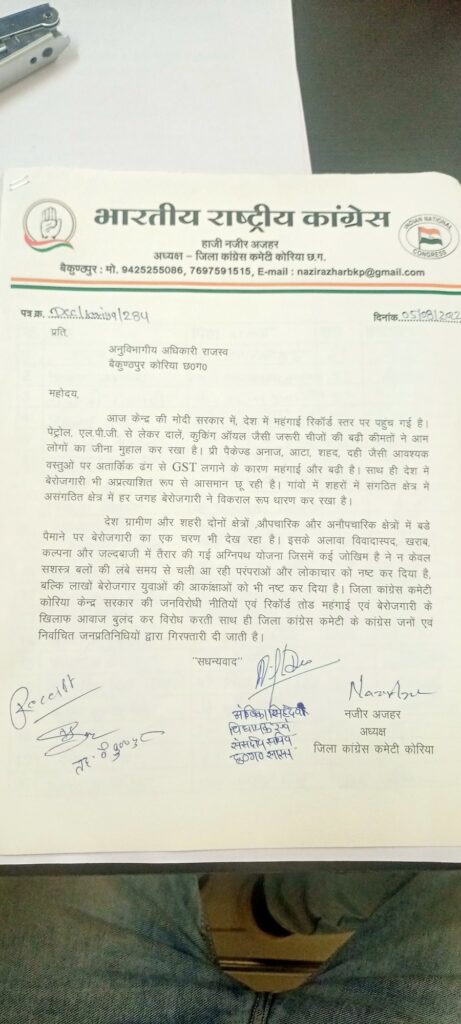 भारतीय राष्ट्रीय कांग्रेस
हाजी नजीर अजहर
अध्यक्ष – जिला कांग्रेस कमेटी कोरिया छ.ग.
बैकुण्ठपुर : मो. 9425255086, 7697591515, E-mail : nazirazharbkp@gmail.com
INDIAN NATIONAL CONGRESS
पत्र.क्र. DCC/koriya/284
दिनांक 05/08/2022
प्रति,
अनुविभागीय अधिकारी राजस्व
बैकुण्ठपुर कोरिया छ०ग०
महोदय,
आज केन्द की मोदी सरकार में, देश में महंगाई रिकॉर्ड स्तर पर पहुच गई है।
पेट्रोल, एल.पी.जी. से लेकर दाले, कुकिंग ऑयल जैसी जरूरी चीजों की बढी कीमतों ने आम
लोगों का जीना मुहाल कर रखा है। प्री पैकेज्ड अनाज, आटा, शहद, दही जैसी आवश्यक
वस्तुओं पर अतार्किक ढंग से GST लगाने के कारण महंगाई और बढी है। साथ ही देश में
बेरोजगारी भी अप्रत्याशित रूप से आसमान छू रही है। गांवो में शहरों में संगठित क्षेत्र में
असंगठित क्षेत्र में हर जगह बेरोजगारी ने विकराल रूप धारण कर रखा है।
देश ग्रामीण और शहरी दोनों क्षेत्रों ,औपचारिक और अनौपचारिक क्षेत्रों में बडे
पैमाने पर बेरोजगारी का एक चरण भी देख रहा है। इसके अलावा विवादास्पद, खराब,
कल्पना और जल्दबाजी में तैरार की गई अग्निपथ योजना जिसमें कई जोखिम है ने न केवल
सशस्त्र बलों की लंबे समय से चली आ रही परंपराओं और लोकाचार को नष्ट कर दिया है,
बल्कि लाखों बेरोजगार युवाओं की आकांक्षाओं को भी नष्ट कर दिया है। जिला कांग्रेस कमेटी
कोरिया केन्द्र सरकार की जनविरोधी नीतियों एवं रिकॉर्ड तोड महंगाई एवं बेरोजगारी के
खिलाफ आवाज बुलंद कर विरोध करती साथ ही जिला कांग्रेस कमेटी के कांग्रेस जनों एवं
निर्वाचित जनप्रतिनिधियों द्वारा गिरफ्तारी दी जाती है।
"सधन्यवाद"
Receipt
अंबिका सिंहदेव
विधायक एवं
संसदीय सचिव
छ०ग० शासन
नजीर अजहर
अध्यक्ष
जिला कांग्रेस कमेटी कोरिया